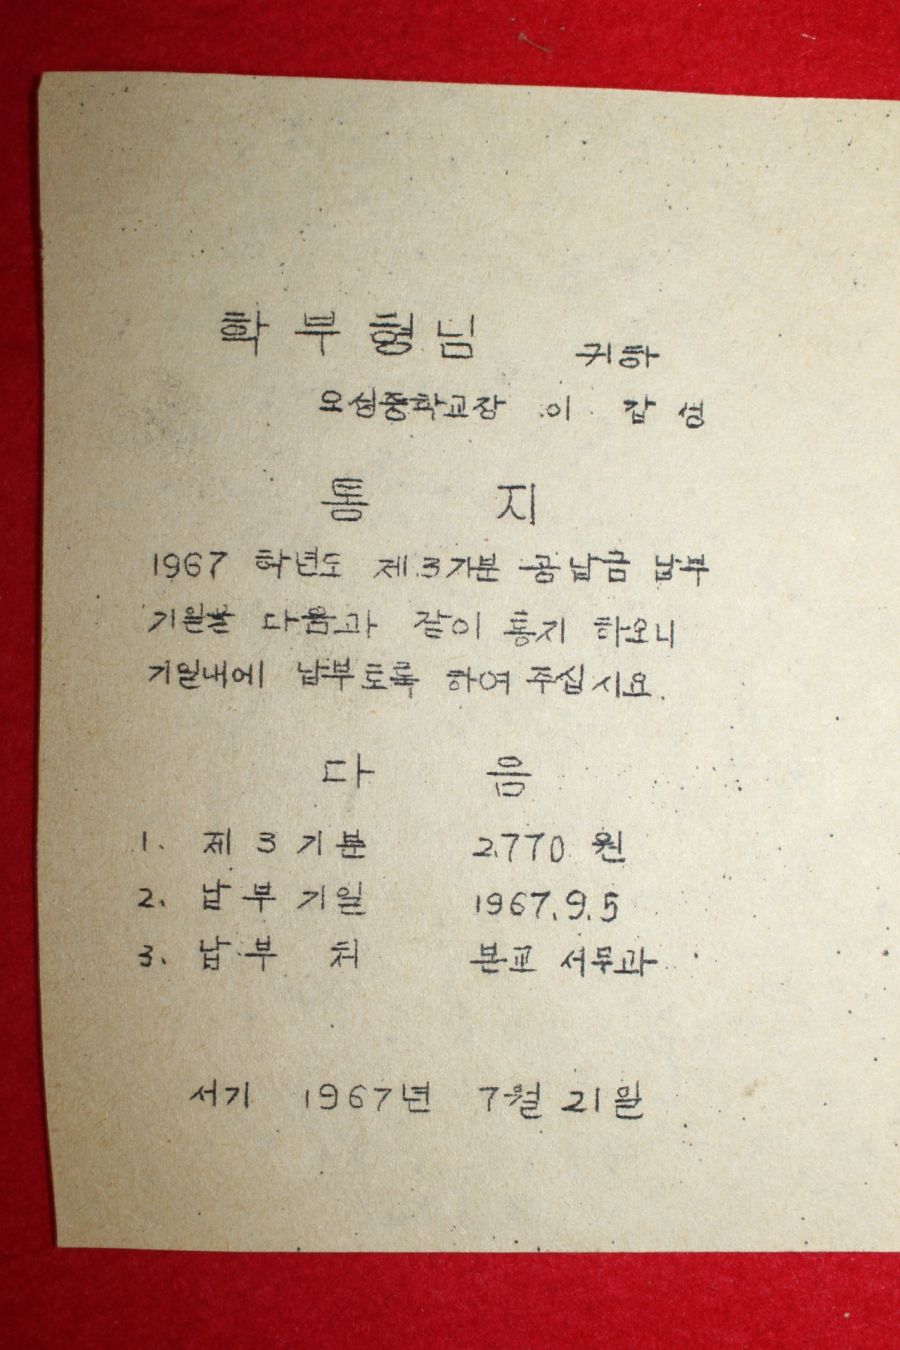 학부형님 귀하
오성중학교장 이 갑 성
통 지
1967 학년도 제3기분 공납금 납부
기일을 다음과 같이 통지 하오니
기일내에 납부토록 하여 주십시요.
다 음
1. 제 3 기분 2,770 원
2. 납부 기일 1967.9.5
3. 납부 처 본교 서무과
서기 1967년 7월 21일